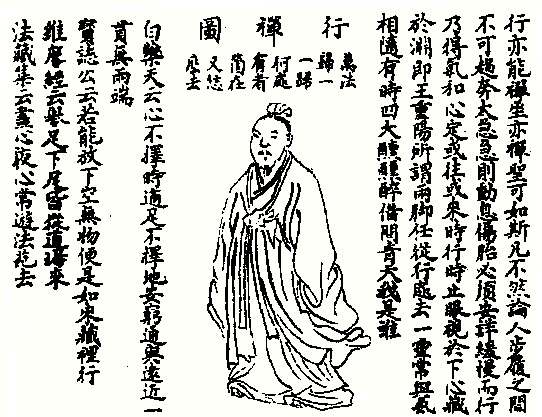 行亦能禪坐亦禪聖可如斯凡不然論人步履之間
不可趨奔太急急則動息傷胎必須安詳緩慢而行
乃得氣和心定或往或來時行時止眼視於下心藏
於淵即王重陽所謂兩脚任從行處去一靈常與氣
相隨有時四大醺醺醉借問青天我是誰
行禪圖
萬法
歸一
一歸
何處
有者
箇在
又恁
麼去
白樂天云心不擇時適足不擇地安窮通與遠近一
貫無兩端
寶誌公云若能放下空無物便是如來藏裡行
維摩經云舉足下足皆從道場來
法藏集云晝心夜心常遊法苑去